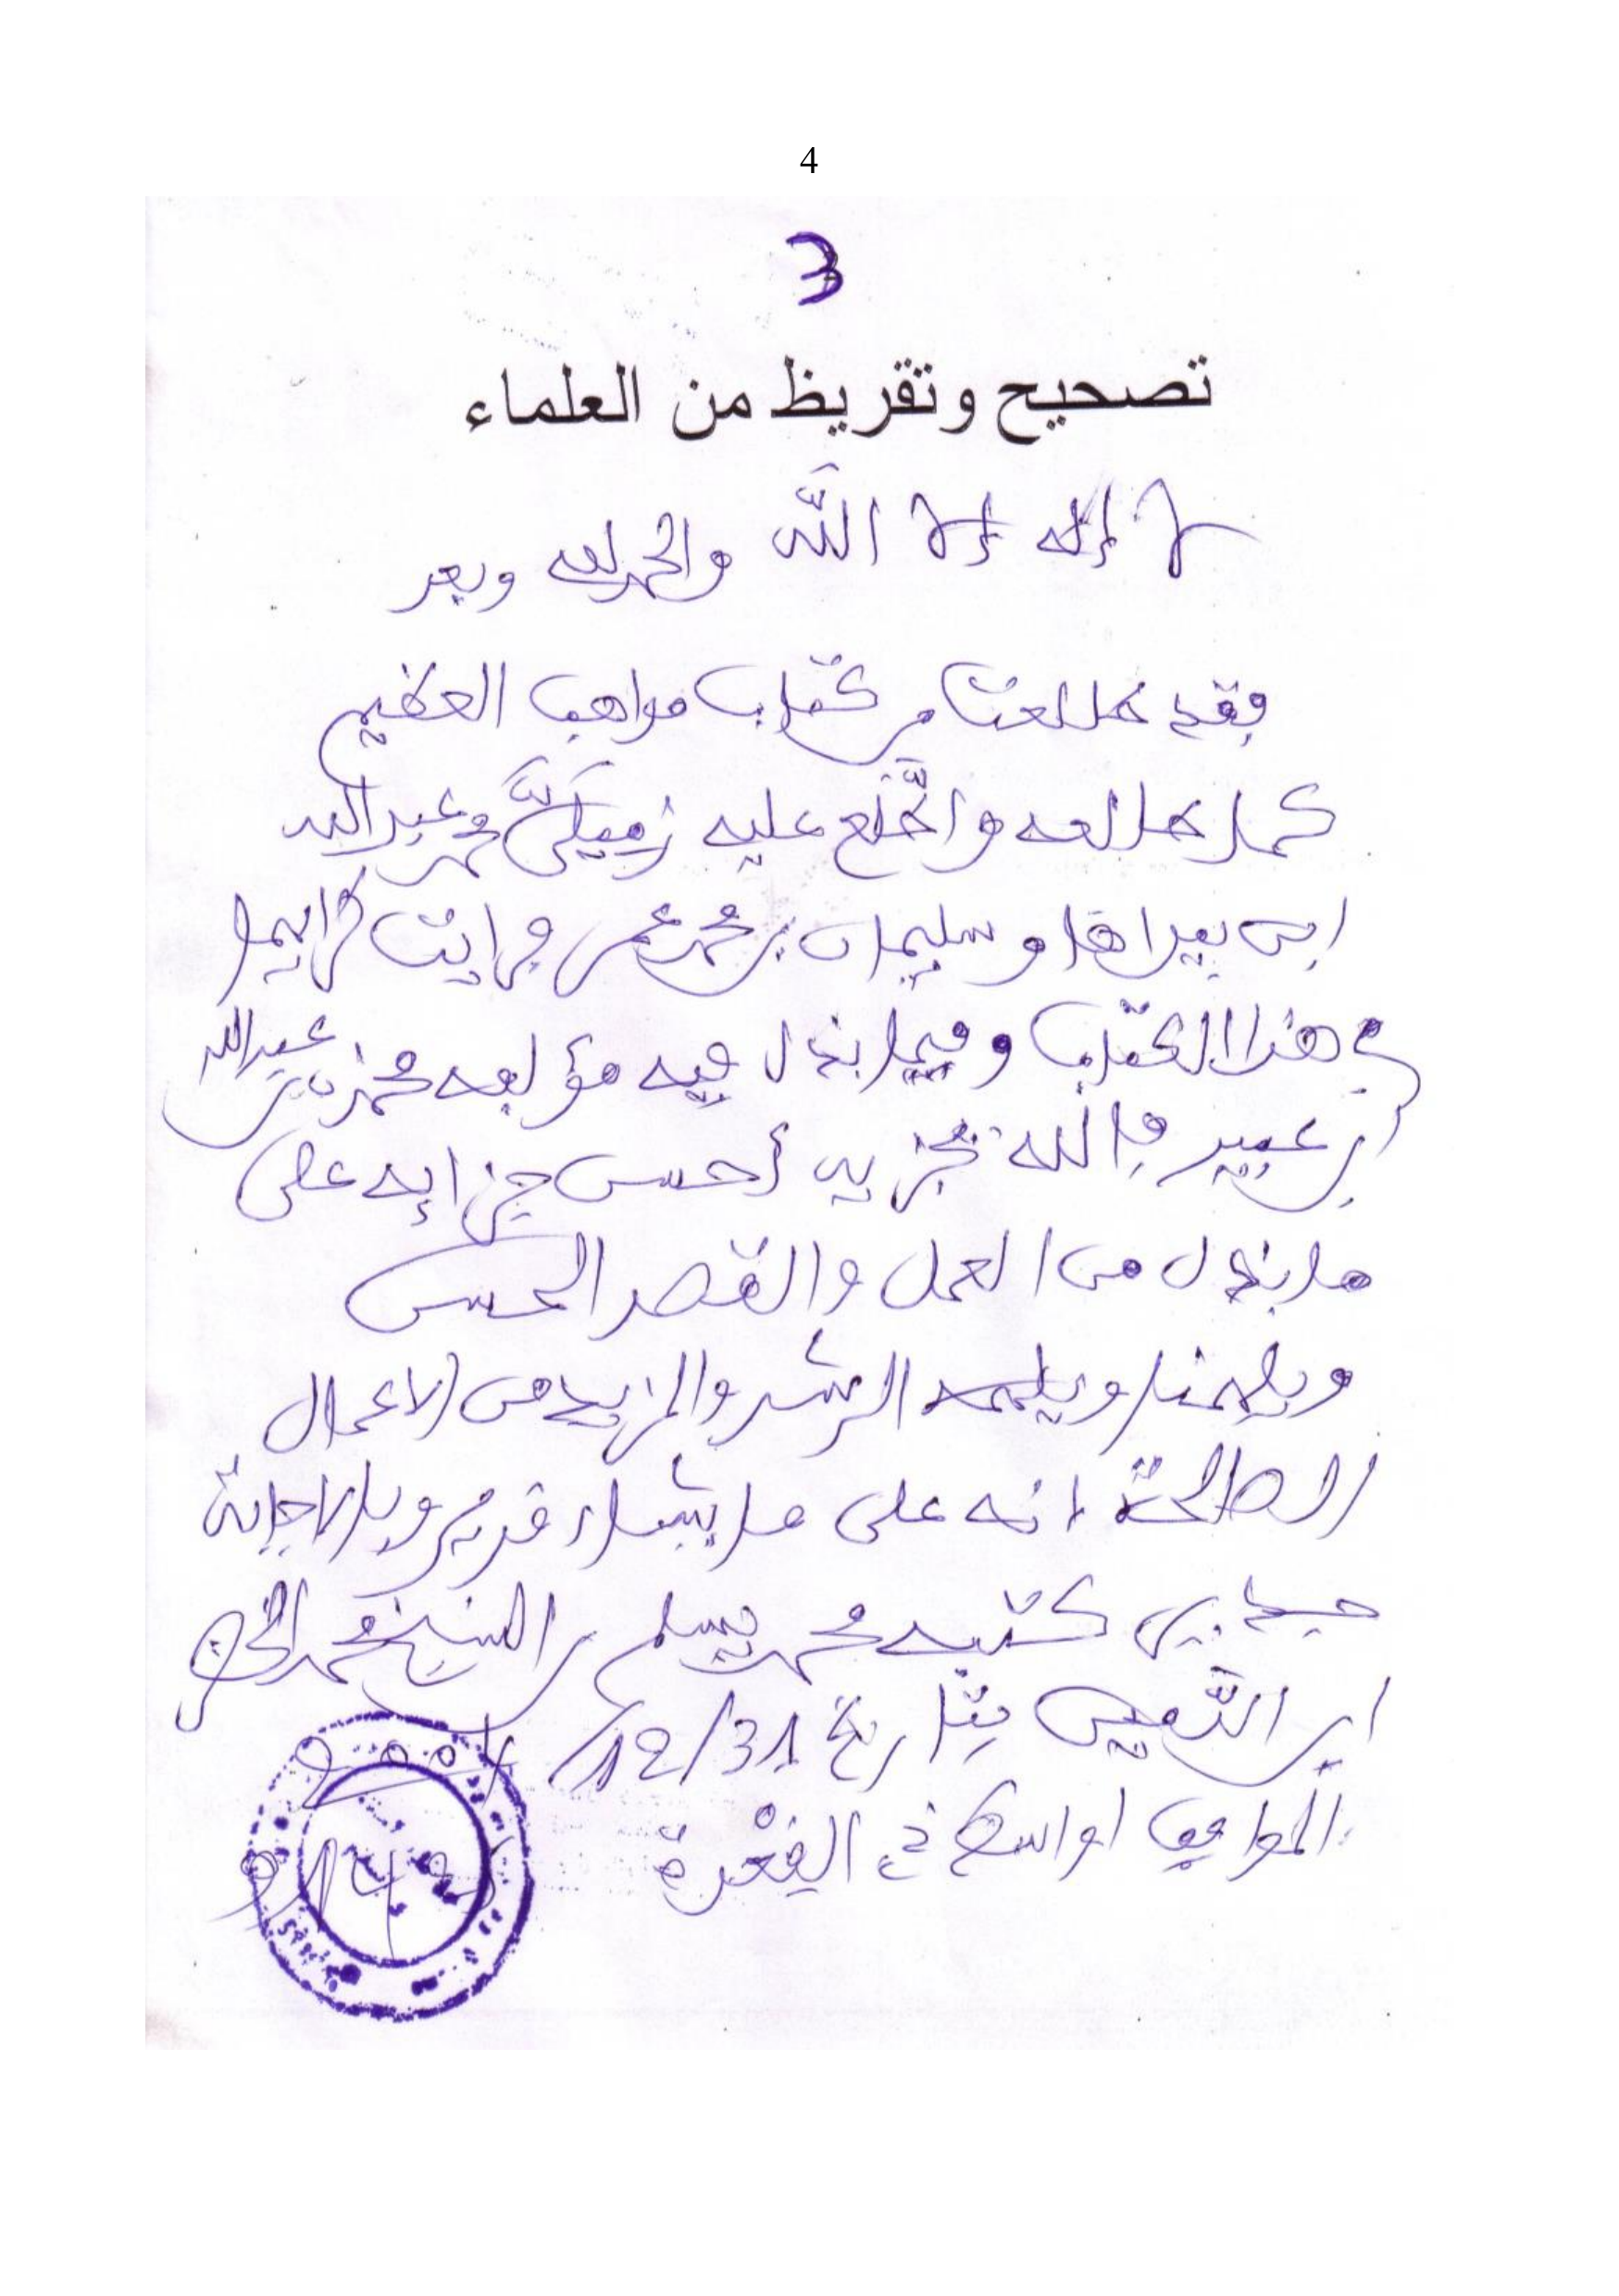 4
3
تصحيح وتقريظ من العلماء
لا إله إلا الله والحمد لله وبعد
فقد طالعت من كتاب مواهب العظيم
كما طالعه واطلع عليه زميلي محمد عبد الله
ابن بيداها وسليمان بن محمد عمر
في هذا الكتاب وفيما بذل فيه مؤلفه محمذن بن عبد الله
ابن عبيد فالله يجزيه أحسن جزايه على
ما بذل من العمل والقصد الحسن
ويلهمنا ويلهمه الرشد والمزيد من الاعمال
الصالحة انه على ما يشاء قدير وبالاجابة
جدير كتبه محمد يسلم بن الشيخ محمد الخضر
ابن بتاريخ 31/12/
الموافق اواسط ذي القعْدة